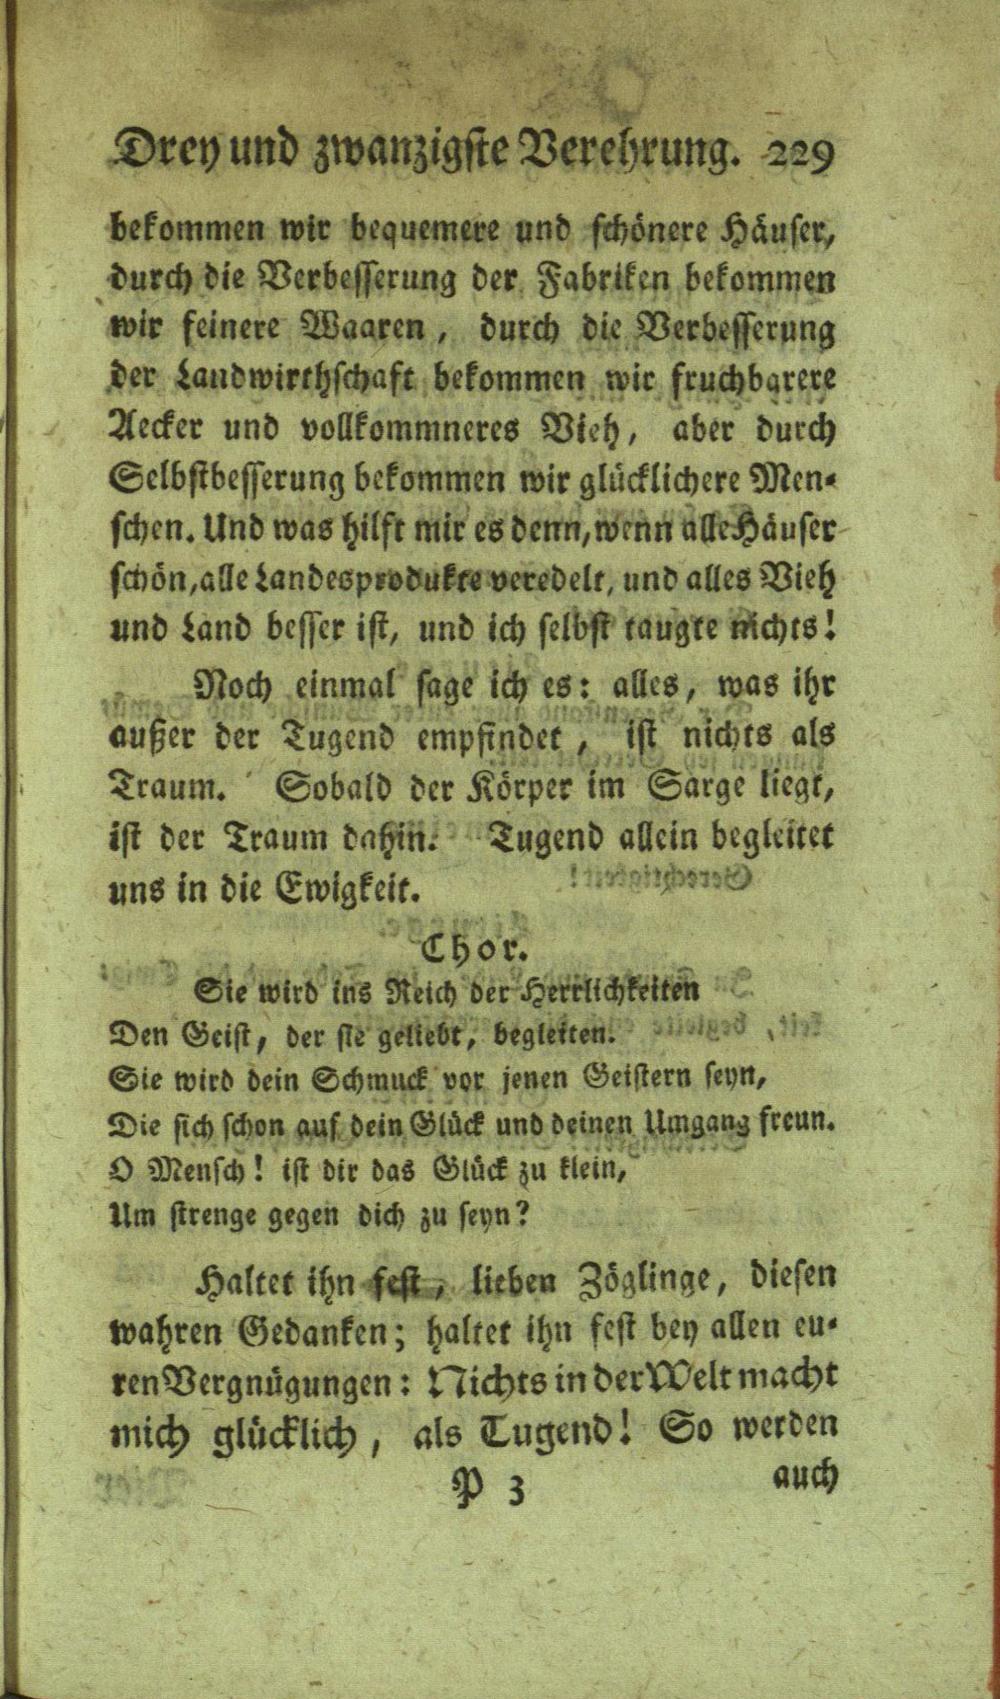 Drey und zwanzigste Verehrung. 229
bekommen wir bequemere und schönere Häuser,
durch die Verbesserung der Fabriken bekommen
wir feinere Waaren, durch die Verbesserung
der Landwirthschaft bekommen wir fruchbarere
Aecker und vollkommneres Vieh, aber durch
Selbstbesserung bekommen wir glücklichere Men-
schen. Und was hilft mir es denn, wenn alle Häuser
schön, alle Landesprodukte veredelt, und alles Vieh
und Land besser ist, und ich selbst taugte nichts!
Noch einmal sage ich es: alles, was ihr
außer der Tugend empfindet, ist nichts als
Traum. Sobald der Körper im Sarge liegt,
ist der Traum dahin. Tugend allein begleitet
uns in die Ewigkeit.
Chor.
Sie wird ins Reich der Herrlichkeiten
Den Geist, der sie geliebt, begleiten.
Sie wird dein Schmuck vor jenen Geistern seyn,
Die sich schon auf dein Glück und deinen Umgang freun.
O Mensch! ist dir das Glück zu klein,
Um strenge gegen dich zu seyn?
Haltet ihn fest, lieben Zöglinge, diesen
wahren Gedanken; haltet ihn fest bey allen eu-
ren Vergnügungen: Nichts in der Welt macht
mich glücklich, als Tugend! So werden
P 3 auch